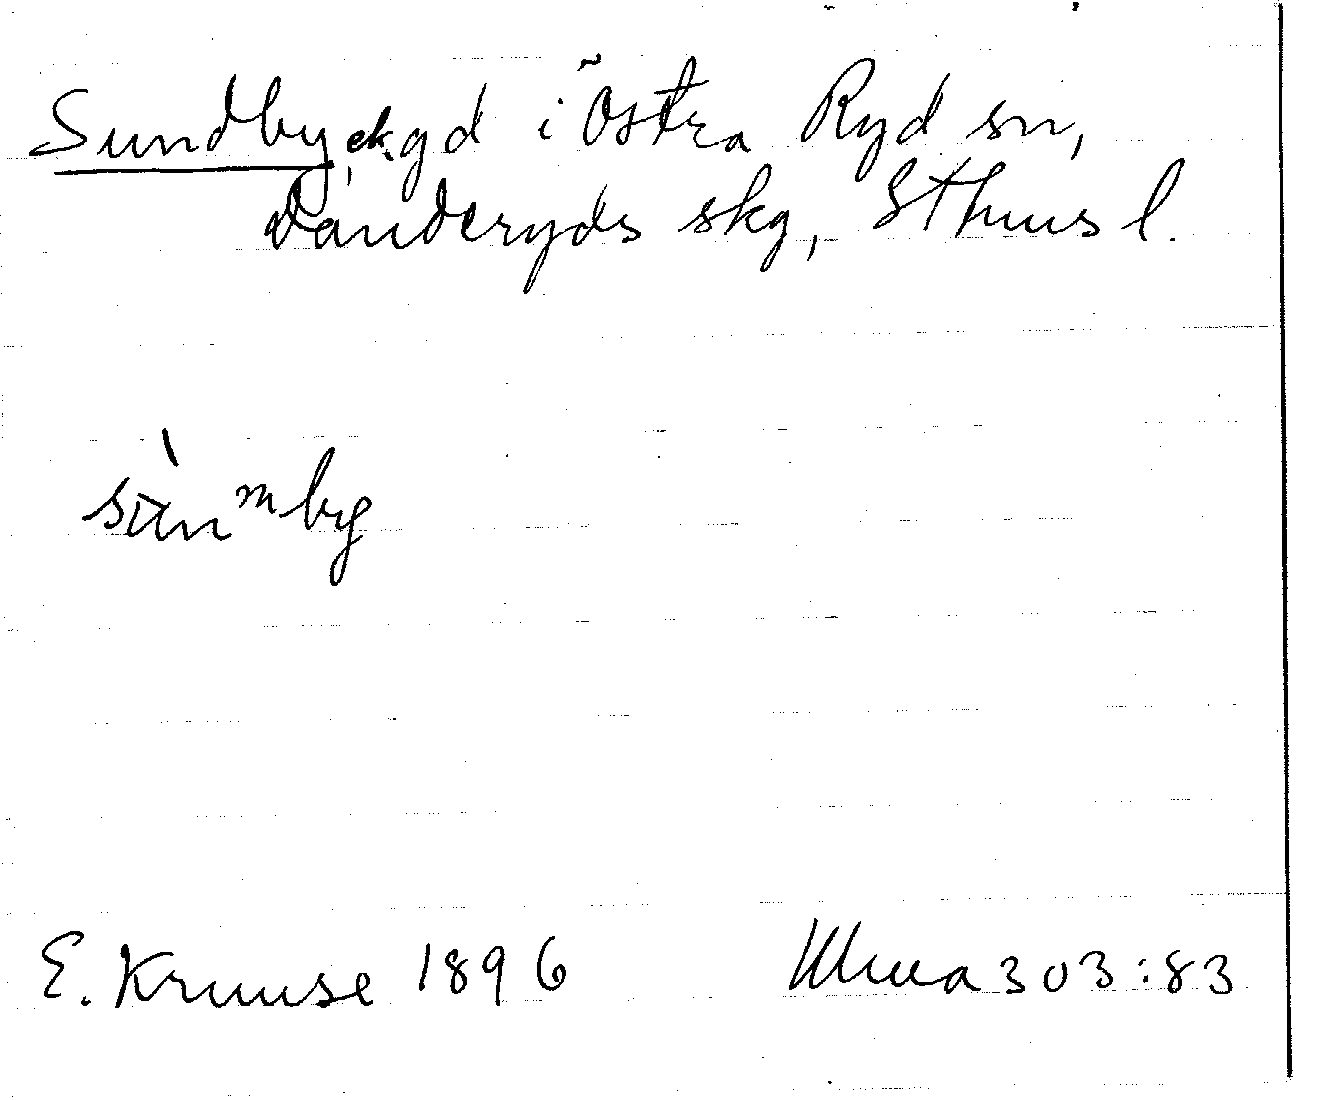 Sundby, ek. gd i Östra Ryd sn,
Danderyds skg, Sthms l.
E. Kruuse 1896 303:83